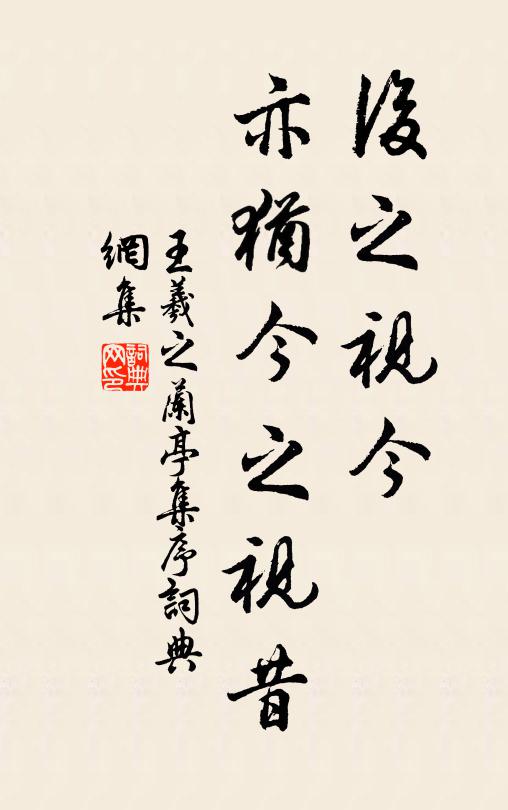 後之視今
亦猶今之視昔
王羲之蘭亭集序詞典
網集
詞典
网印